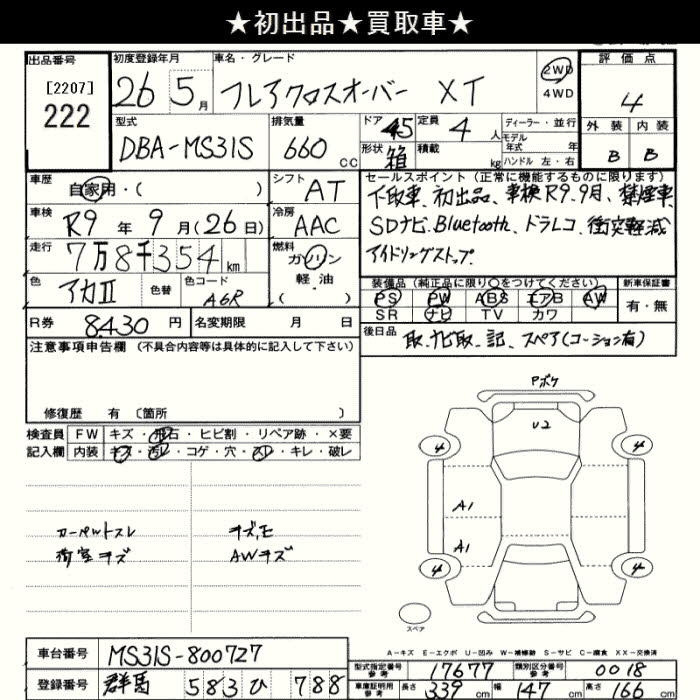 ★初出品★買取車★
出品番号 初度登録年月 車名・グレード 評価点
[2207] 222 26 5月 フレアクロスオーバー XT 2WD 4WD 4
型式 排気量 ドア 定員 ディーラー・並行 外装 内装
DBA-MS31S 660 CC 45 4人 モデル年式 年 B B
形状 箱 積載 kg ハンドル 左・右
車歴 自家用・( ) シフト AT セールスポイント(正常に機能するものに限ります)
下取車、初出品、車検R9.9月、禁煙車
車検 R9年9月(26日) 冷房 AAC SDナビ.Bluetooth、ドラレコ、衝突軽減
走行 7万8千354km 燃料 ガソリン 軽・油 ( ) アイドリングストップ.
色 アカII 色替 色コード A6R 装備品(純正品に限り○をつけてください) 新車保証書
PS PW ABS エアB AW 有・無
R券 8430円 名変期限 月 日 SR ナビ TV カワ
注意事項申告欄(不具合内容等は具体的に記入して下さい) 後日品 取.ナビ取.記、スペア(コーション有)
修復歴 有 〔箇所 〕
検査員 FW キズ・飛石・ヒビ割・リペア跡・×要
記入欄 内装 キズ・汚レ・コゲ・穴・スレ・キレ・破レ
Pボケ
U2
4 4
A1
A1
4 4
カーペットスレ キズ,E
荷室キズ AWキズ
スペア
A-キズ E-エクボ U-凹み W-補修跡 S-サビ C-腐食 XX-交換済
車台番号 MS31S-800727 型式指定番号 参考 17677 類別区分番号 参考 0018
登録番号 群馬 583 ひ 788 車庫証明用 参考 長さ 339cm 幅 147cm 高さ 166cm